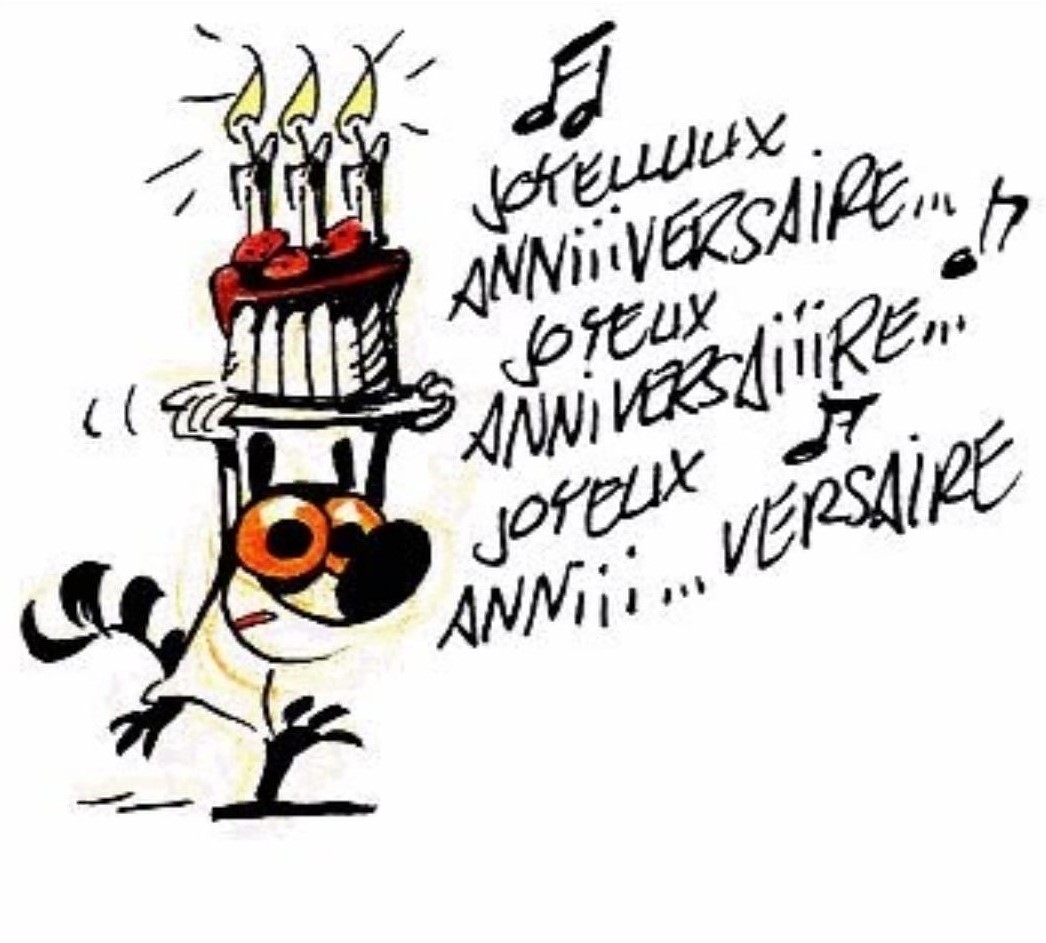 JOYEUUUUX
ANNiiiVERSAiRE...
JOYEUX
ANNiVERSAiiiRE...
JOYEUX
ANNiii...VERSAiRE